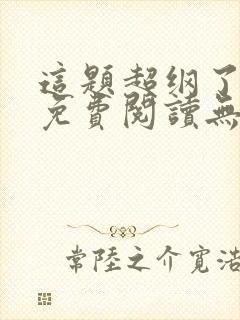 這題超纲了
免費閱讀無
常陸之介寬浩